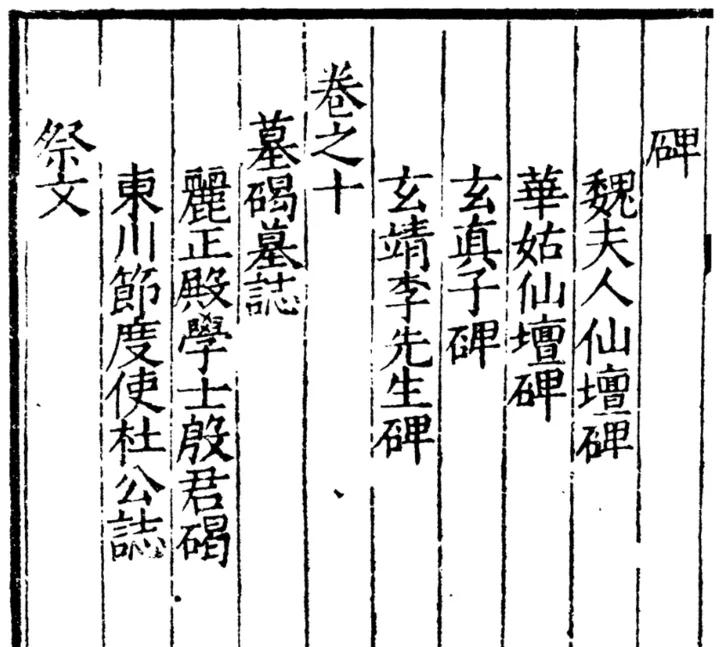 碑
魏夫人仙壇碑
華姑仙壇碑
玄真子碑
玄靖李先生碑
卷之十
墓碣墓誌
麗正殿學士殷君碣
東川節度使杜公誌
祭文